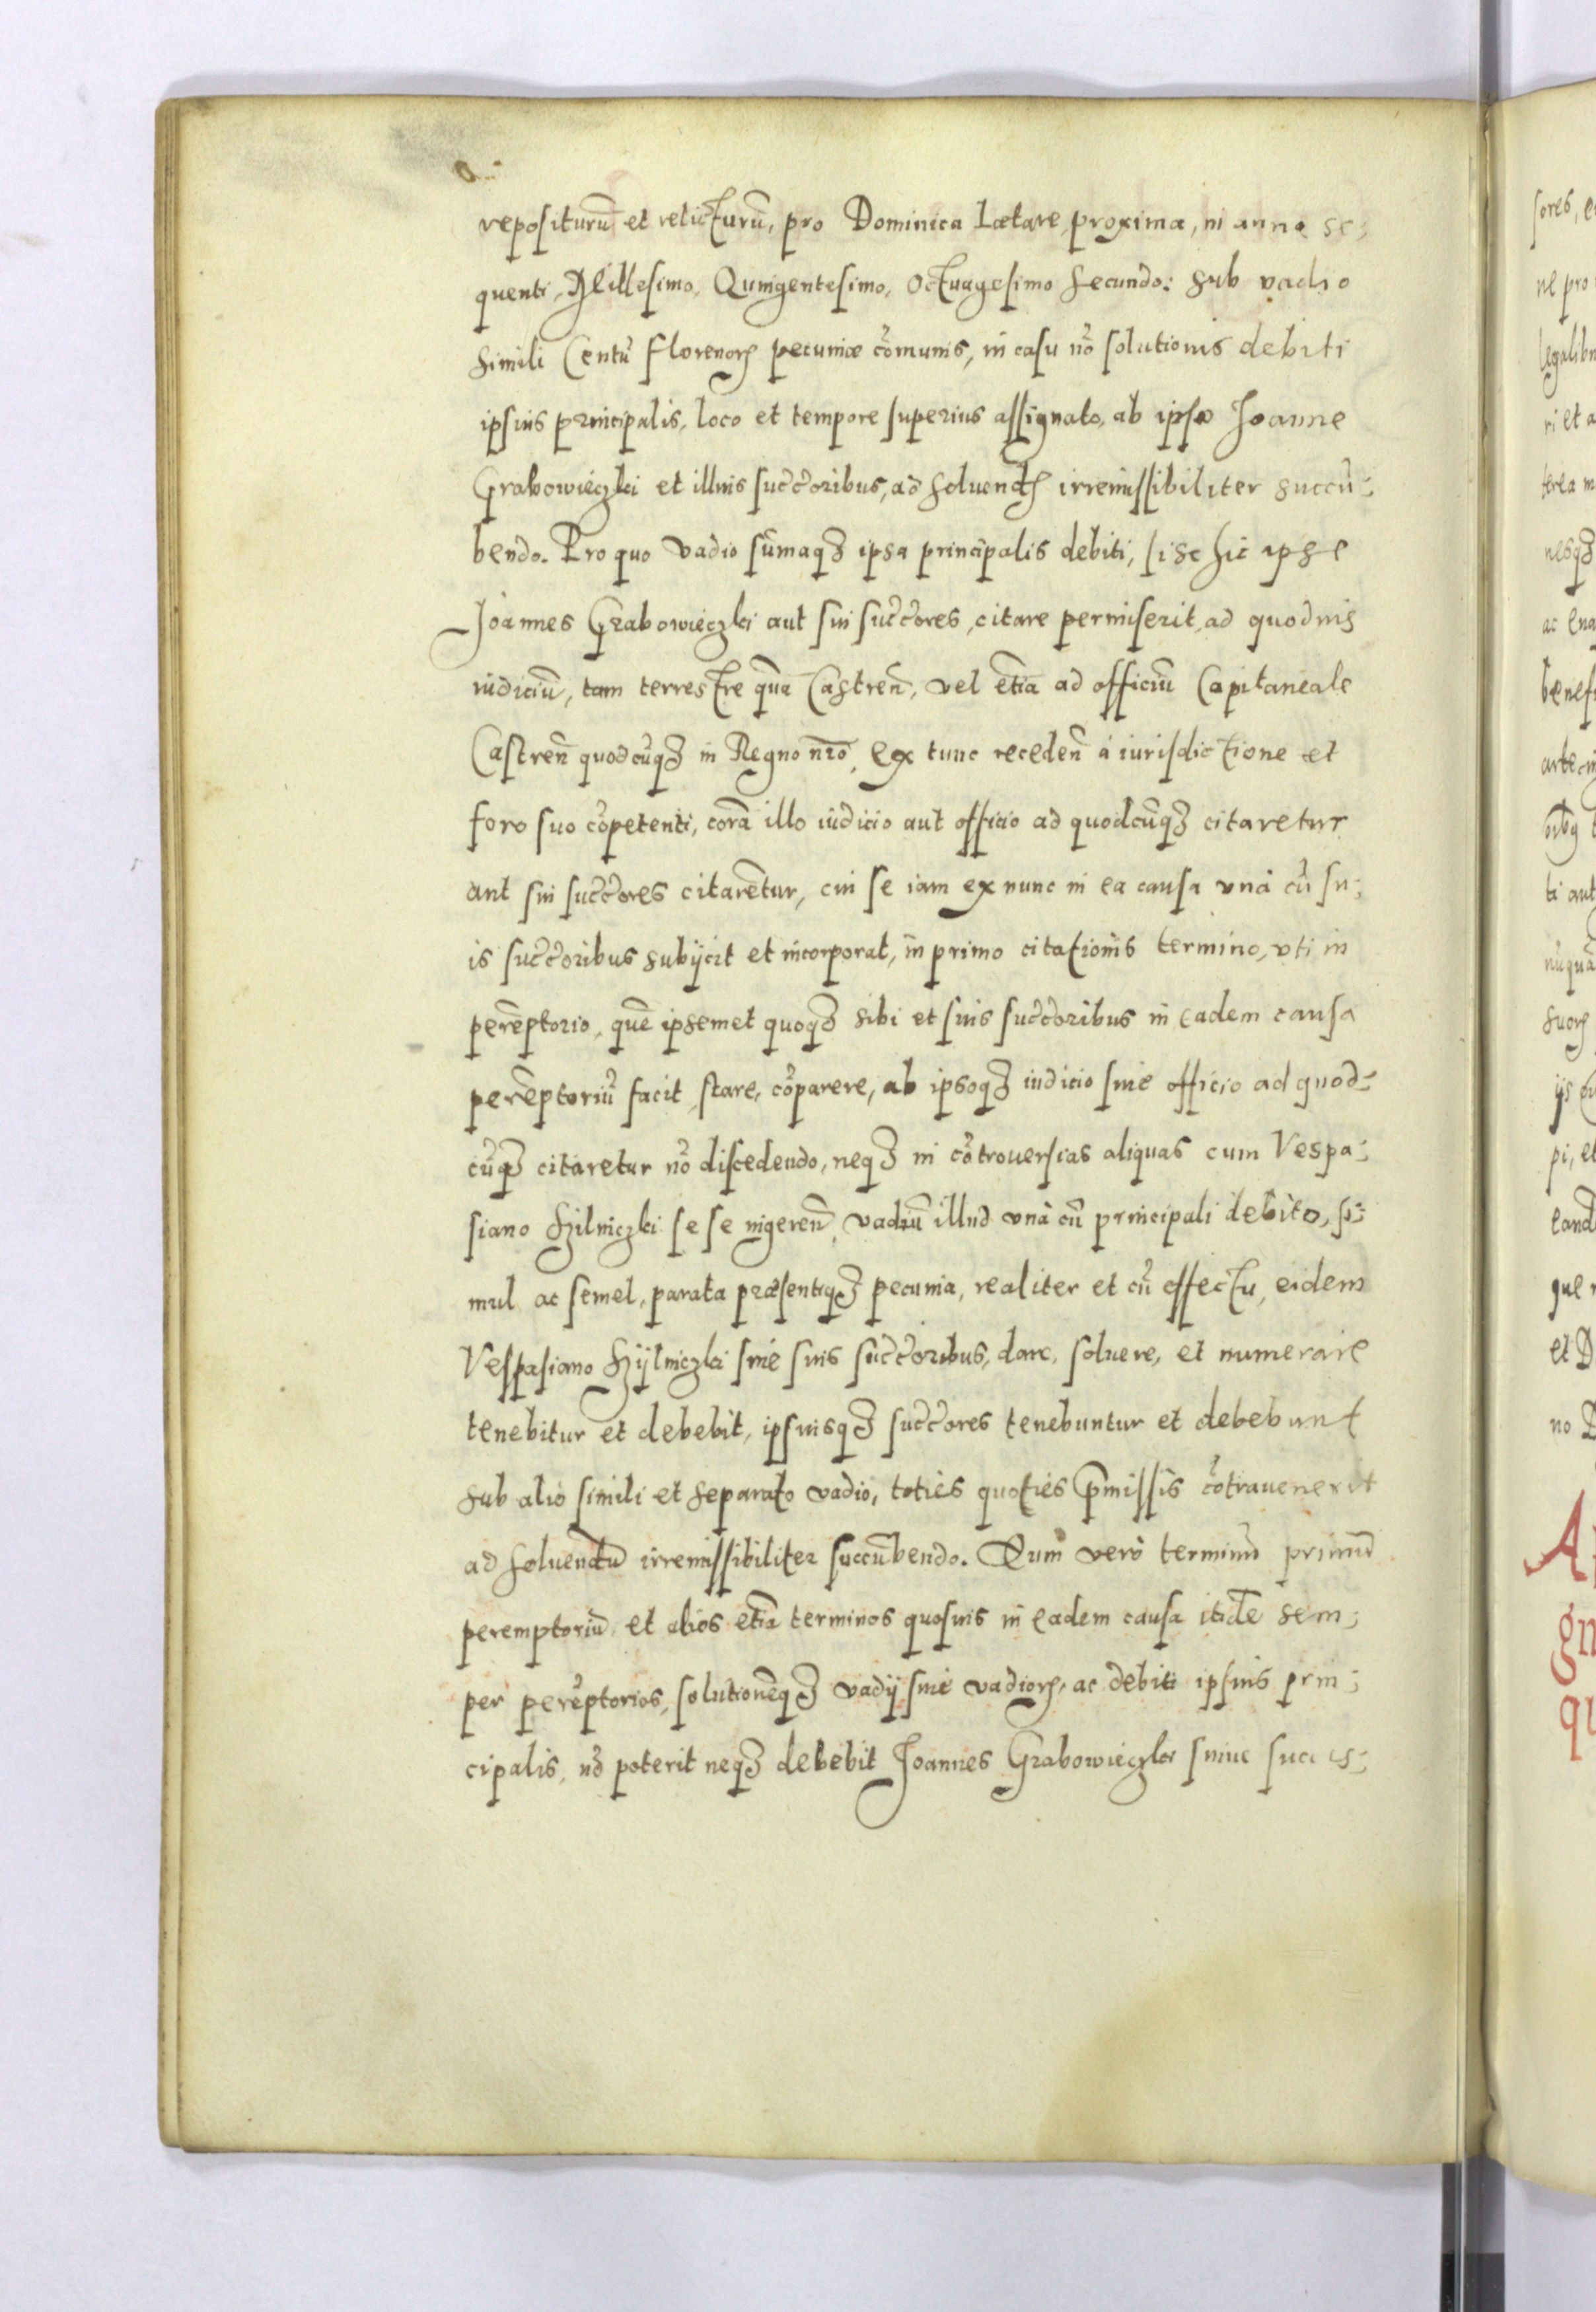 repositurũ et relicturũ, pro Dominica Lætare, proxima, in anno se;
quenti, Millesimo, Quingentesimo, Octuagesimo secundo: sub vadio
simili Centũ florenorꝝ pecuniæ cõmunis, in casu nõ solutionis debiti
ipsius principalis, loco et tempore superius assignato, ab ipso Joanne
Grabowieczki et illius succ̃oribus, ad soluendꝝ irremissibiliter succũ;
bendo. Pro quo vadio sũmaqꝫ ipsa principalis debiti, si se hic ipse
Joannes Grabowieczki aut sui succ̃ores, citare permiserit, ad quoduis
iudiciũ, tam terrestre quã Castreñ, vel etiã ad officiũ Capitaneale
Castreñ quodcũqꝫ in Regno nr̃o, ex tunc recedeñ à iurisdictione et
foro suo cõpetenti, corã illo iudicio aut officio ad quodcũqꝫ citaretur
aut sui succ̃ores citarẽtur, cui se iam ex nunc in ea causa vnà cũ su;
is succ̃oribus subijcit et incorporat, in primo citationis termino, vti in
perẽptorio, quẽ ipsemet quoqꝫ sibi et suis succ̃oribus in eadem causa
perẽptoriũ facit, stare, cõparere, ab ipsoqꝫ iudicio siue officio ad quod;
cũqꝫ citaretur nõ discedendo, neqꝫ in cõtrouersias aliquas cum Vespa;
siano Szilniczki se se ingereñ, vadiũ illud vnà cũ principali debito, si;
mul ac semel, parata præsentiqꝫ pecunia, realiter et cũ effectu, eidem
Vespasiano Szijlniczki siue suis succ̃oribus, dare, soluere, et numerare
tenebitur et debebit, ipsiusqꝫ succ̃ores tenebuntur et debebunt
sub alio simili et separato vadio, toties quoties p̃missis cõtrauenerit
ad soluendũ irremissibiliter succũbendo. Quum verò terminũ primũ
peremptoriũ et alios etiã terminos quosuis in eadem causa itidẽ sem;
per perẽptorios, solutionẽqꝫ vadij siue vadiorꝝ, ac debiti ipsius prin;
cipalis, nõ poterit neqꝫ debebit Joannes Grabowieczki suiue succes;